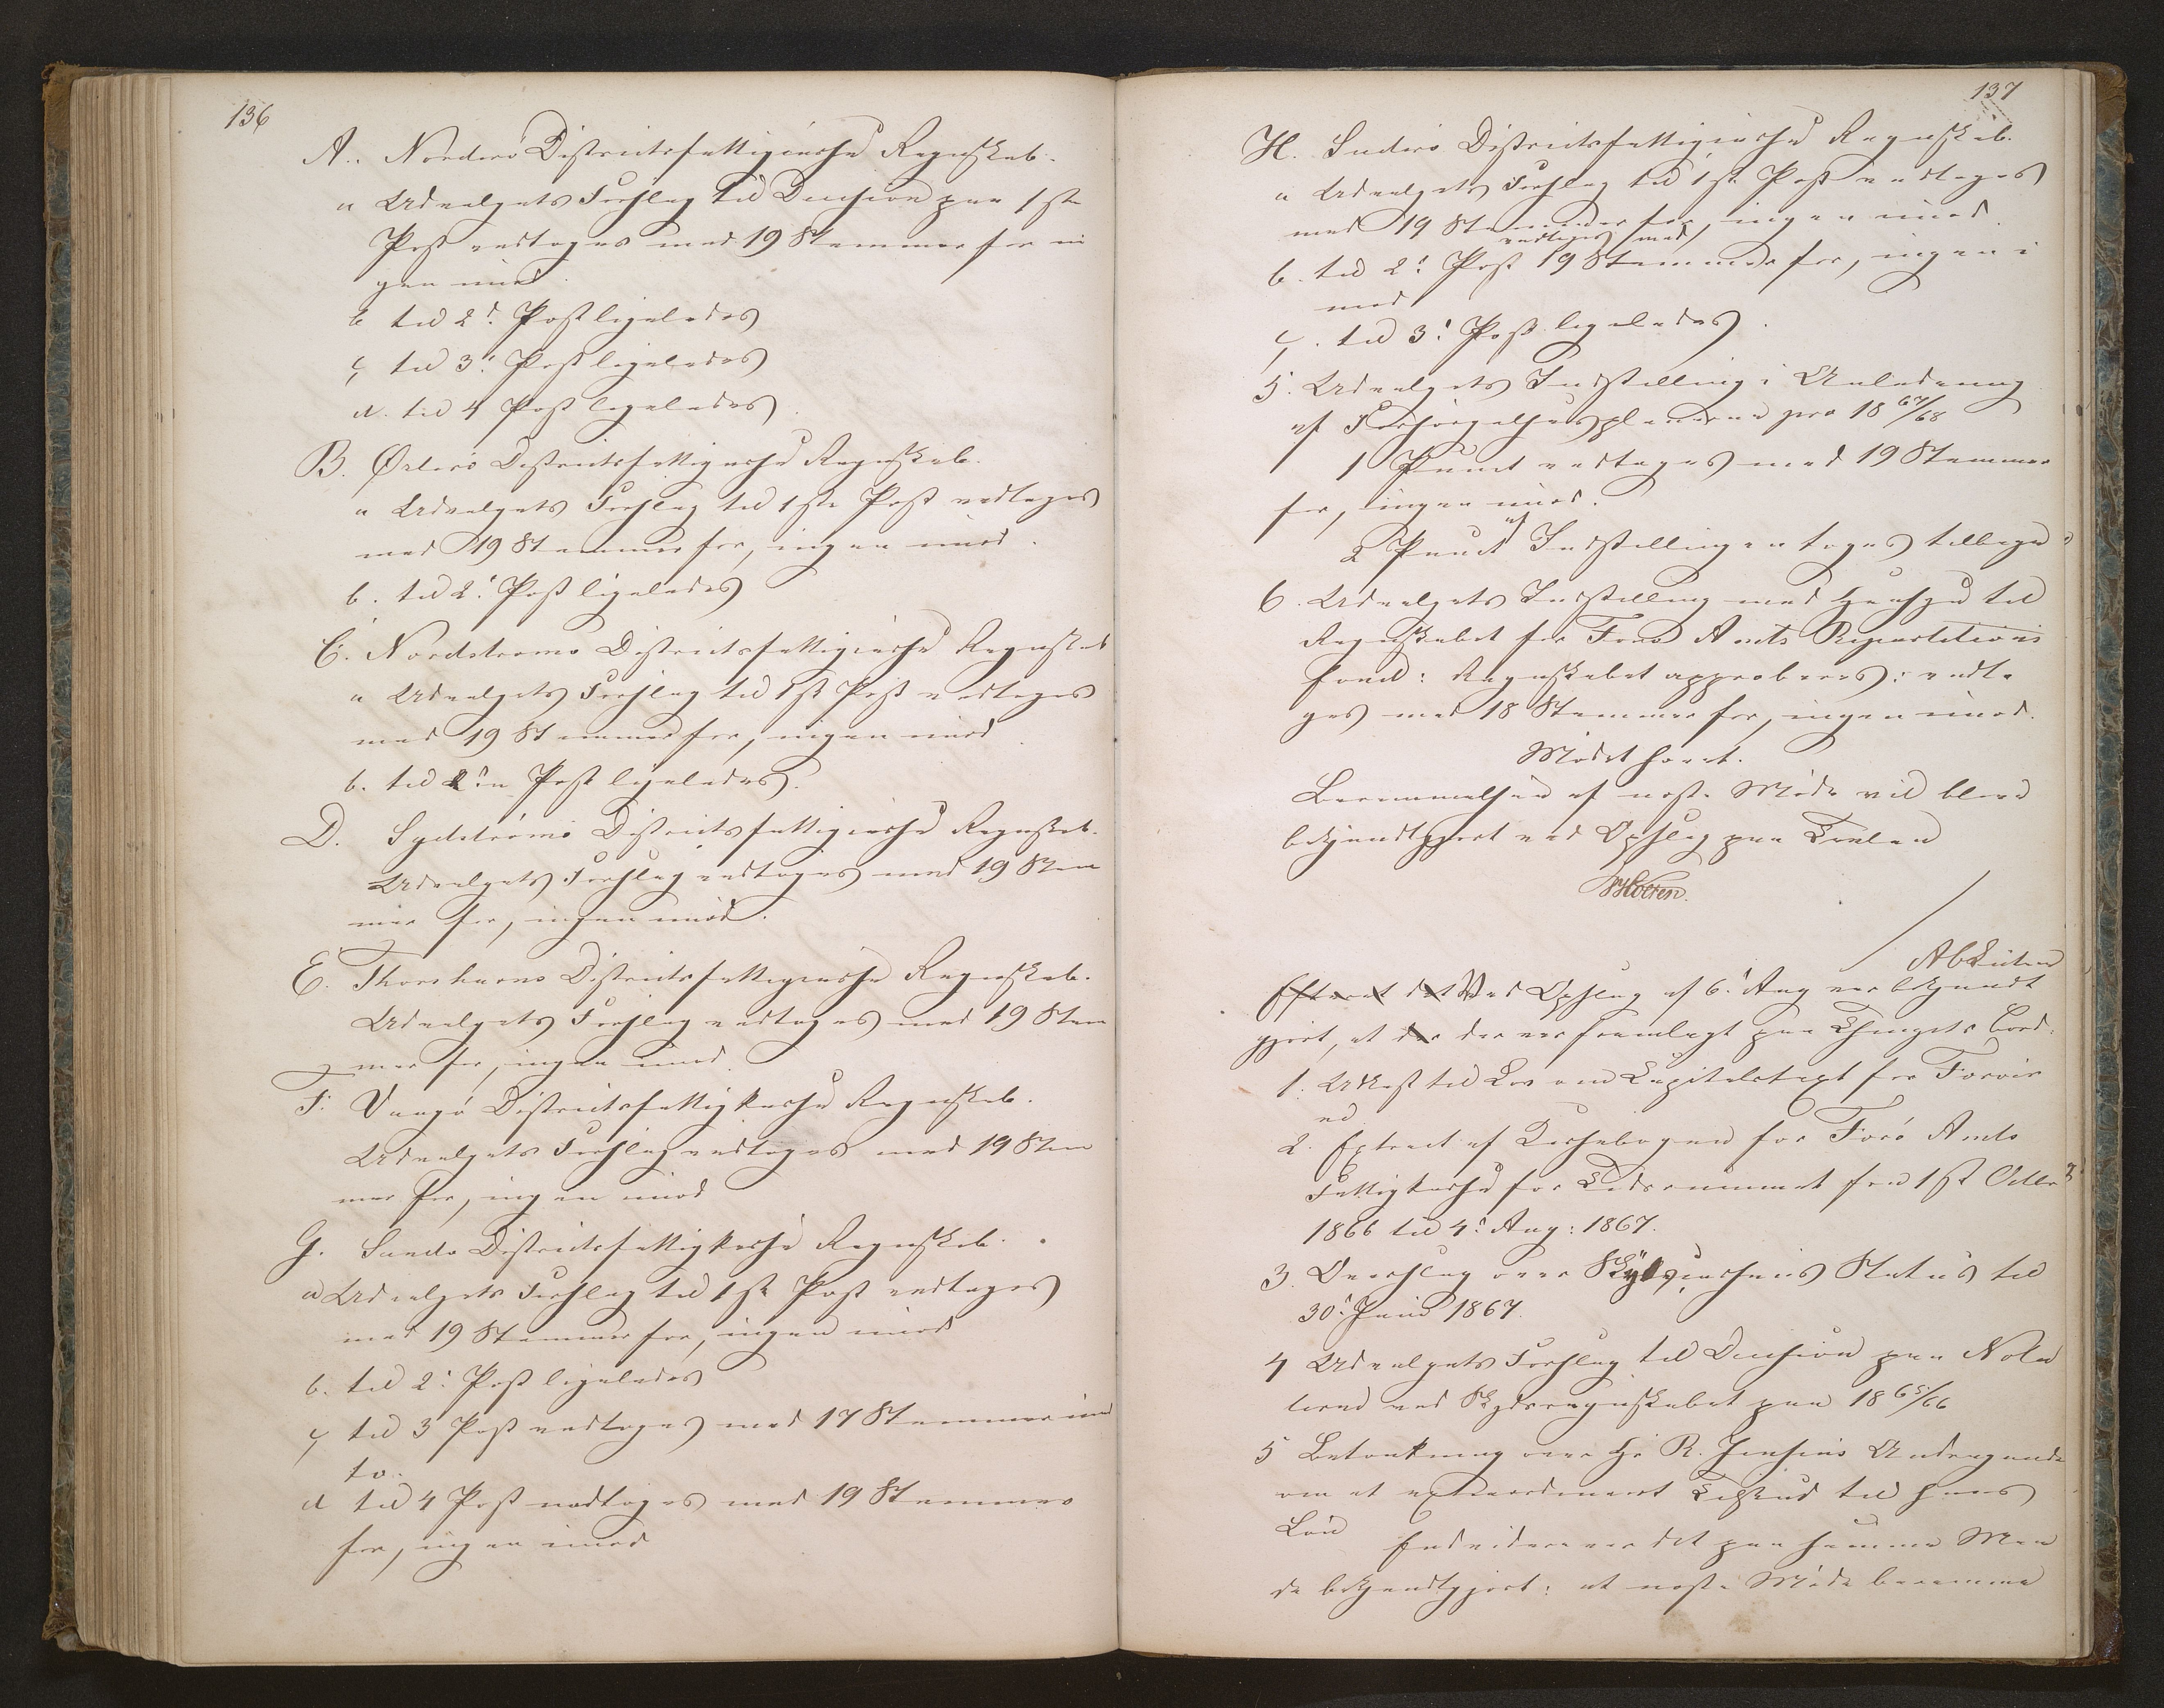 136
A. Norderø Districtsfattigcasses Regnskab.
a Udvalgets Forslag til Decision paa 1ste
Post vedtoges med 19 Stemmer for in
gen imod
b til 2d. Post ligeledes
c, til 3d. Post ligeledes
d. til 4 Post ligeledes
B. Østerø Districtsfattigcasses Regnskab.
a Udvalgets Forslag til 1ste Post vedtoges
med 19 Stemmer for, ingen imod.
b. til 2d. Post ligeledes
C. Nordstrømø Districtsfattigcasses Regnskab
a Udvalgets Forslag til 1ste Post vedtoges
med 19 Stemmer for, ingen imod
b. til 2den Post ligeledes.
D. Sydstrømø Districtsfattigcasses Regnskab.
Udvalgets Forslag vedtoges med 19 Stem
mer for, ingen imod.
E. Thorshavns Districtsfattigcasses Regnskab.
Udvalgets Forslag vedtoges med 19 Stem
mer for, ingen imod.
F. Vaagø Districtsfattigkasses Regnskab.
Udvalgets Forslag vedtoges med 19 Stem
mer for, ingen imod
G. Sandø Districtsfattigkasses Regnskab.
a Udvalgets Forslag til 1ste Post vedtoges
med 19 Stemmer for, ingen imod
b. til 2d. Post ligeledes
c, til 3 Post vedtoges med 17 Stemmer imod
to.
d til 4 Post vedtoges med 19 Stemmer
for, ingen imod
137
H. Suderø Districtsfattigcasses Regnskab.
a Udvalgets Forslag til 1ste Post vedtoges
med 19 Stemmer for, ingen imod.
vedtoges med
b. til 2d. Post 19 Stemmer for, ingen i
mod
c, til 3d. Post ligeledes.
5. Udvalgets Indstilling i Anledning
af Forsørgelsesplanerne pro 18 67/68
1 Punct vedtoges med 19 Stemmer
for, ingen imod.
2 Punct af Indstillingen toges tilbage
6. Udvalgets Indstilling med Hensyn til
Regnskabet for Færø Amts Repartitions
fond: Regnskabet approberes: vedto
ges med 18 Stemmer for, ingen imod.
Mødet hævet.
Berammelsen af næste Møde vil blive
bekjendtgjort ved Opslag paa Tavlen
HCMüller
Efterat det Ved Opslag af 6d. Aug var bekjendt
gjort, at der der var fremlagt paa Thingets Bord:
1. Udkast til Lov om Capitelstaxt for Færøer
ne
2. Extract af Kassebogen for Færø Amts
Fattigkasse for Tidsrummet fra 1ste Octbr
1866 til 4d. Aug: 1867.
3. Overslag over Skydscassens Status til
30d. Juni 1867.
4 Udvalgets Forslag til Decision paa Nota
terne ved Skydsregnskabet paa 18 65/66
5 Betænkning over Hr R. Jensens Andragende
om et extraordinært Tilskud til hans
Løn
Endvidere var det paa samme Maa
de bekjendtgjort: at næste Møde beramme